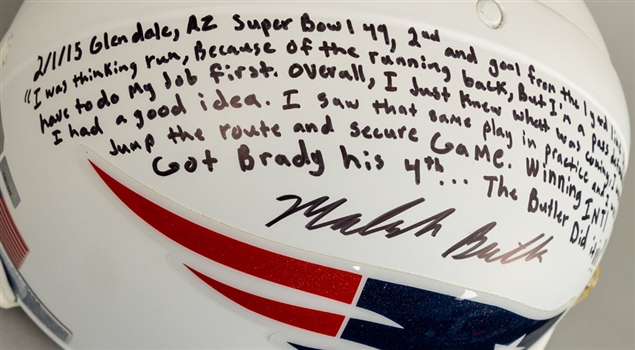 2/1/15 Glendale, AZ Super Bowl 49, 2nd and goal from the 1 yard line.
"I was thinking run, Because of the running back, But I'm a pass
have to do My Job first. Overall, I Just knew what was coming.
I had a good idea. I saw that same play in practice and
Jump the route and secure Game. Winning INT
Got Brady his 4th... The Butler Did it
Malcolm Butler